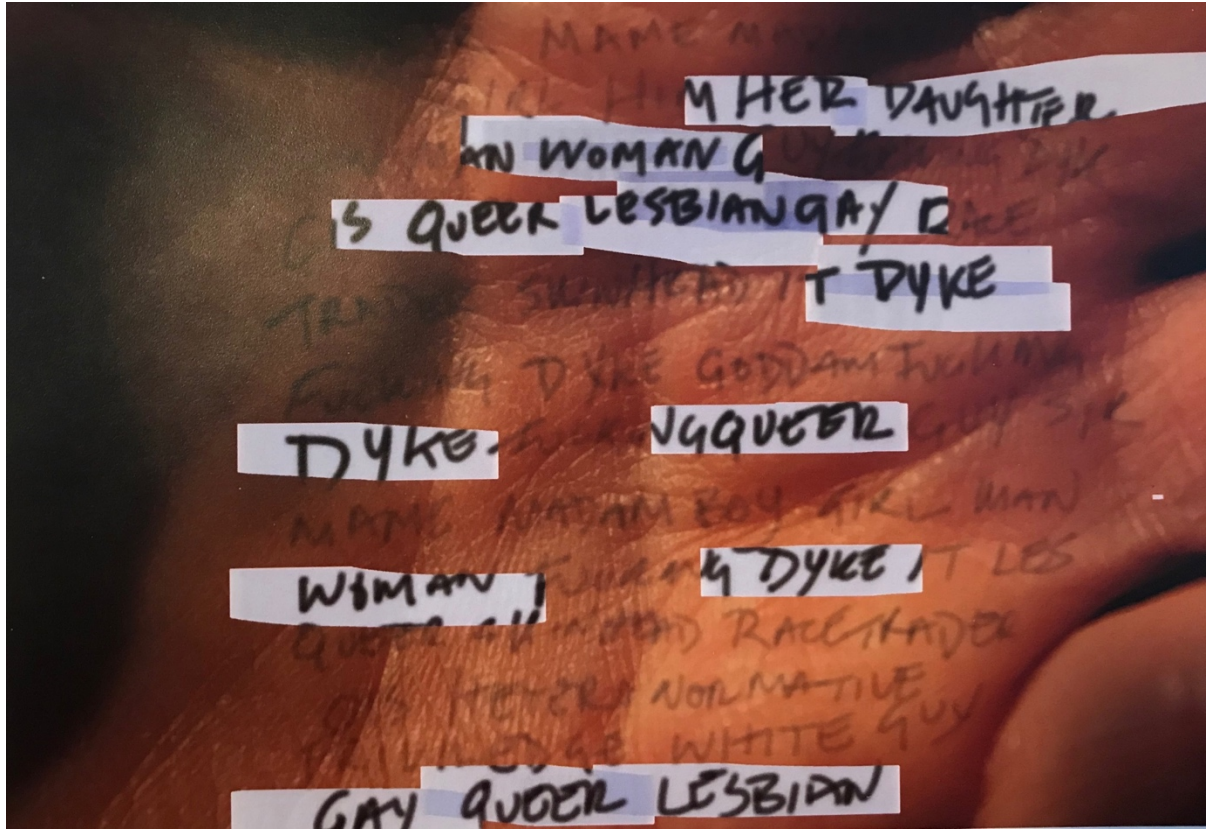 SIR MAME MA
GIRL HIM HER DAUGHTER
AN WOMAN GUY FUCKING DYK
CIS QUEER LESBIAN GAY RACE
TRADER SKINHEAD IT DYKE
FUCKING DYKE GODDAM FUCKING
DYKE FUCKINGQUEER GUY SIR
MAME MADAM BOY GIRL MAN
WOMAN FUCKING DYKE IT LES
QUEER SKINHEAD RACETRADER
CIS HETERONORMATIVE
PRIVILEDGE WHITE GUY
GAY QUEER LESBIAN